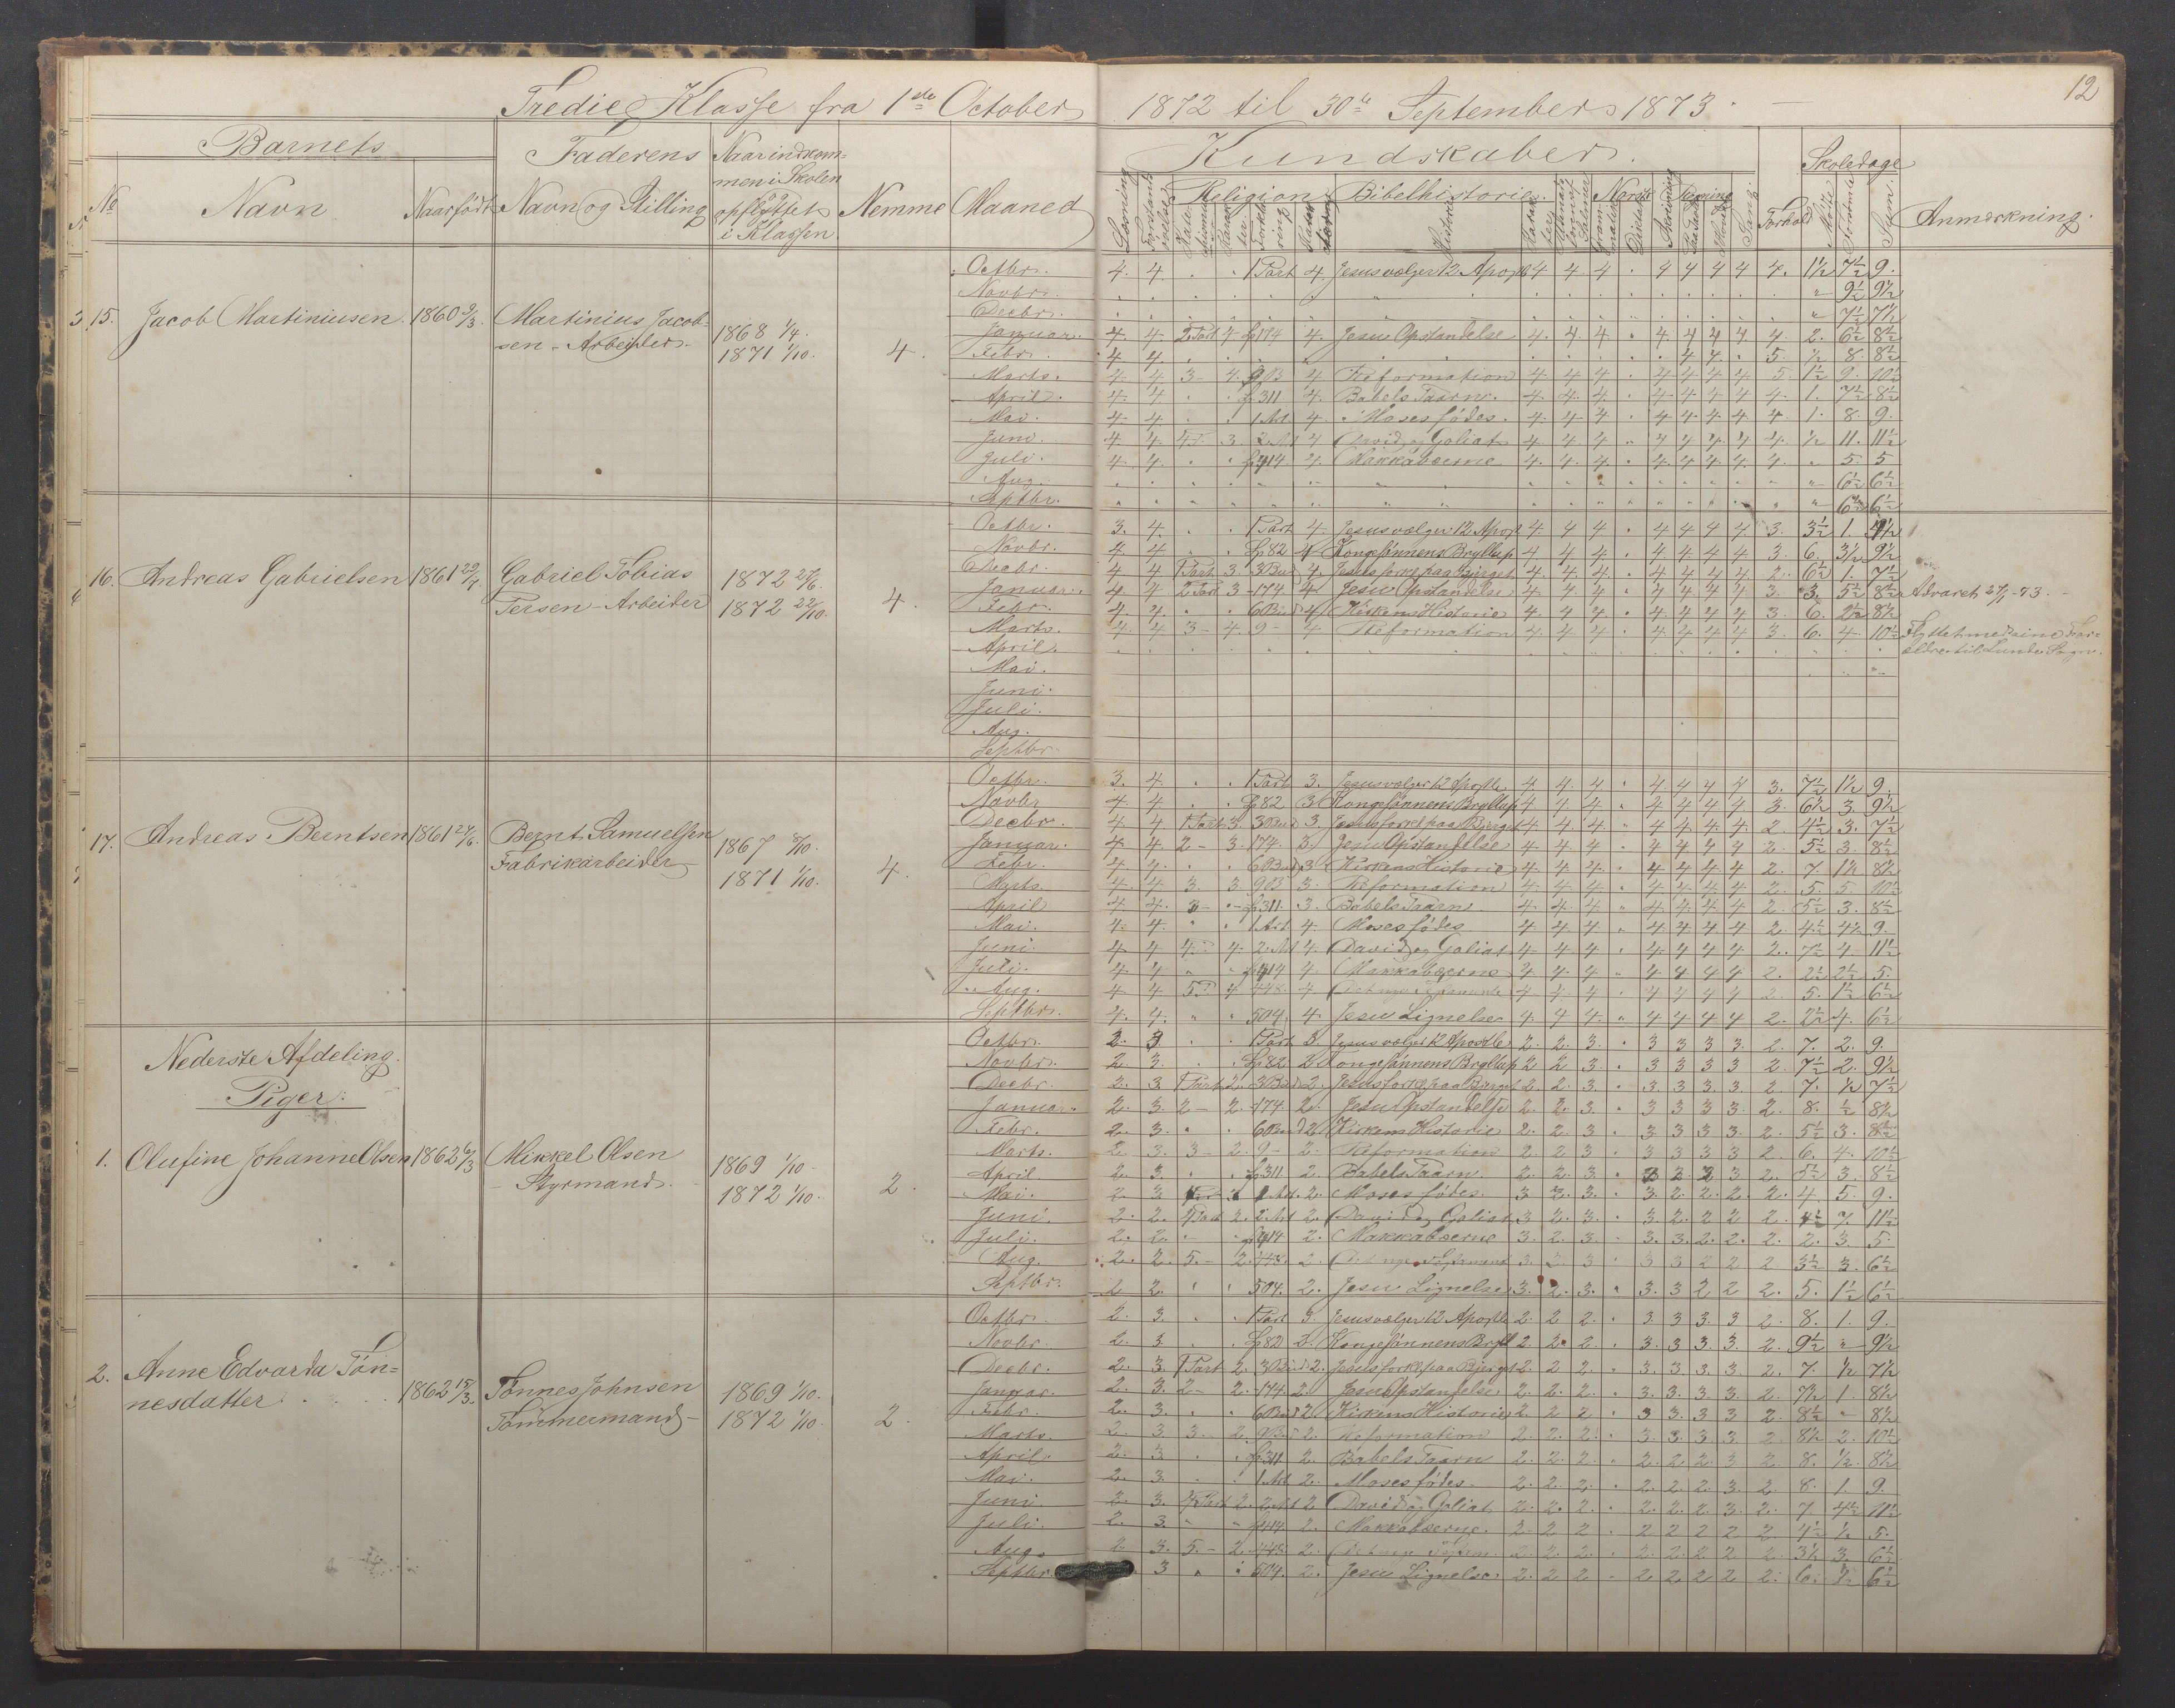 Tredie Klasse fra 1ste October 1872 til 30te September 1873.
12
Barnets
Faderens
Naar indkom-
men i Skolen
og
opflyttet
i Klassen.
Kundskaber.
Skoledage
No
Navn
Naar født
Navn og Stilling
Nemme
Maaned
Religion
Bibelhistorie
Norsk
Regning
Sang
Forhold
Mødt
Forsømt
Sum
Anmærkning.
15. Jacob Martiniusen. 1860 9/3. Martinius Jacob-
sen - Arbeider.
1868 1/4.
1871 1/10.
4.
Octbr. 4. 4. 1 Part 4 Jesus vælger 12 Apostle 4 4 4 4 4 4 4 4. 1½ 7½ 9.
Novbr. 9½ 9½
Decbr. 7½ 7½
Januar. 4. 4 2 Part 4 174 4. Jesu Opstandelse 4. 4. 4. 4. 4 4 4 4. 2. 6½ 8½
Febr. 4 4 4 4. 5. ½ 8. 8½
Marts. 4 4 3 - 4. 9 B 4 Reformation 4. 4. 4. 4. 4 4 4 5. 1½ 9. 10½
April. 4. 4 311 4. Babels Taarn. 4. 4. 4. 4. 4 4 4 4. 1. 7½ 8½
Mai. 4. 4. 1 Art 4 Moses fødes. 4. 4. 4 4 4 4 4 4. 1. 8. 9.
Juni. 4. 4. 3. 2. Art 4 David og Goliat 4. 4 4 4 4 4. 4 4. ½ 11. 11½
Juli. 4. 4. 414 4. Makkabæerne 4. 4. 4. 4. 4. 4. 4. 4. 5. 5
Aug. 6½ 6½
Septbr. 6½ 6½
16. Andreas Gabrielsen 1861 29/7. Gabriel Tobias
Tersen - Arbeider
1872 27/6.
1872 22/10.
4.
Octbr. 3. 4. 1 Part 4 Jesus vælger 12 Apost 4 4 4 4 4 4 4. 3. 3½ 1.
Novbr. 4 4 82 4 Kongesønnens Bryllup 4 4 4. 4 4 4 4 3. 6. 3½ 9½
Decbr. 4 4 1 Part 3. 3 Bud 4. Jesus forkl. paa Bjerget 4. 4. 4. 4. 4. 4. 4 2. 6½ 1. 7½
Januar. 4 4 2 Part 3 - 174 4 Jesu Opstandelse 4. 4. 4. 4 4 4 4 3. 3. 5½ 8½ Advaret 27/1 - 73.
Febr. 4. 4. 6 Bud 4 Kirkens Historie 4. 4 4. 4. 4 4 4 3. 6. 2½ 8½
Marts. 4. 4 3 - 4. 9 - 4 Reformation 4. 4. 4. 4. 4 4 4 3. 6. 4. 10½ Flyttet med sine For-
ældre til Lunde Sogn.
April.
Mai.
Juni.
Juli.
Aug.
Septbr.
17. Andreas Berntsen 1861 24/6. Bernt Samuelsen
Fabrikarbeider
1867 8/10.
1871 1/10.
4.
Octbr. 3. 4. 1 Part 3. Jesus vælger 12 Apostle 4 4. 4 4 4 4 4 3. 7½ 1½ 9.
Novbr 4 4 82 3 Kongesønnens Bryllup 4 4 4 4 4 4 4 3. 6½ 3. 9½
Decbr. 4 4 1 Part 3. 3 Bud 3 Jesus forkl. paa Bjerget 4. 4. 4. 4. 4. 4. 4. 2. 4½ 3. 7½
Januar. 4 4 2 - 3. 174. 3. Jesu Opstandelse 4. 4. 4. 4 4 4 4 2. 5½ 3. 8½
Febr. 4 4. 6 Bud 3 Kirkens Historie 4. 4. 4. 4 4 4 4 2. 7. 1½ 8½
Marts. 4. 4 3. 3. 9 B 3. Reformation 4. 4. 4. 4 4 4 4 2. 5. 5. 10½
April 4 4. 311. 3. Babels Taarn 4. 4. 4 4. 4. 4. 4 2. 5½ 3. 8½
Mai. 4. 4. 1 Art 4. Moses fødes 4. 4. 4 4. 4 4 4 2. 4½ 4½ 9.
Juni. 4. 4 4. 4. 2. Art 4. David og Goliat 4 4 4 4. 4 4 4 2. 7½ 4 11½
Juli. 4. 4 414 4 Makkabæerne 4 4. 4 4 4 4 4 2. 2½ 2½ 5.
Aug. 4. 4 5 4 448. 4 Det nye Testamente 4 4 4 4 4 4 4 2. 5. 1½ 6½
Septbr. 4. 4. 504. 4. Jesu Lignelser 4. 4 4. 4 4 4 4 2. 2½ 4. 6½
Nederste Afdeling.
Piger:
1. Olufine Johanne Olsen 1862 6/3 Mikkel Olsen
Styrmand.
1869 1/10.
1872 1/10.
2.
Octbr. 2. 3 1 Part 3. Jesus vælger 12 Apostle 2. 2. 3. 3 3 3 3. 2. 7. 2. 9.
Novbr. 2. 3. 82. 2 Kongesønnens Bryllup 2 2 3. 3 3 3 3 2. 7½ 2. 9½
Decbr. 2. 3 1 Part 2. 3 Bud 2. Jesus forkl. paa Bjerget 2 2. 3. 3. 3. 3. 3 2 7. ½ 7½
Januar. 2. 3. 2 - 2. 174. 2. Jesu Opstandelse 2. 2. 3. 3 3 3 3. 2. 8. ½ 8½
Febr. 2. 3. 6 Bud 2 Kirkens Historie 2. 2. 3. 3. 3 3 3. 2. 5½ 3. 8½
Marts. 2. 3. 3 - 2. 9 - 2. Reformation 2 2. 3. 3 3 3 3 2. 6. 4. 10½
April 2. 3. 311 2. Babels Taarn. 2. 2. 3. 3 2. 5½ 3. 8½
Mai. 2. 3 1 Art. 2. Moses fødes. 3 2. 3. 3. 2. 2. 2. 2. 4. 5. 9.
Juni. 2. 2. 4 Part 2. 2. Art 2. David og Goliat 3 2. 3. 3. 2. 2 2 2. 4½ 7. 11½
Juli. 2. 2. 414 2. Makkabæerne 3. 2. 3. 3. 3. 2. 2. 2. 2. 3. 5.
Aug. 2. 2. 5. - 2. 448. 2. Det nye Testament 3. 2. 3 3 3 2 2 2 3½ 3. 6½
Septbr. 2. 504. 2. Jesu Lignelser 3. 2. 3. 3. 3 2 2 2. 5. 1½ 6½
2. Anne Edvarda Tøn-
nesdatter 1862 15/3. Tønnes Johnsen
Tømmermand
1869 1/10.
1872 1/10.
2.
Octbr. 2. 3. 1 Part 3 Jesus vælger 12 Apostle 2. 2 2. 3. 3 3. 3 2. 8. 1. 9.
Novbr. 2. 3 82 2. Kongesønnens Bryll 2. 2. 2. 3. 3. 3. 3. 2. 9½ " 9½
Decbr. 2. 3. 1 Part 2. 3 Bud 2. Jesus forkl. paa Bjerget 2. 2. 2. 3. 3. 3. 3. 2. 7. ½ 7½
Januar. 2. 3. 2 - 2. 174. 2. Jesu Opstandelse 2. 2. 2. 3. 3. 3. 3. 2. 7½ 1. 8½
Febr. 2. 3. 6 Bud 2. Kirkens Historie 2. 2 2 3 3. 3. 3 2. 8½ 8½
Marts. 2. 3 3 - 2. 9 Bud 2. Reformation 2. 2. 2. 3. 3. 3. 3. 2 8½ 2. 10½
April. 2. 3 311 2. Babels Taarn 2. 2. 2. 2. 2. 2. 3 2. 8. ½. 8½
Mai. 2. 3. 1 Art 2. Moses fødes. 2. 2. 2. 2. 2. 2. 3. 2. 8. 1. 9.
Juni. 2. 3. 4 Part 2. 2. Art 2 David og Goliat 2. 2. 2. 2. 2. 2. 3. 2. 7 4½ 11½
Juli. 2. 3. 414 2. Makkabæerne. 2 2 2 2 2 2 2 2 4½ ½ 5.
Aug. 2 3. 5. - 2. 448. 2. Det nye Testam. 2. 2. 2. 2. 2. 2. 2 2. 3½ 3. 6½
Septbr. 3 504. 2. Jesu Lignelser. 2. 2 2 2 2 2 2 2. 6. ½ 6½